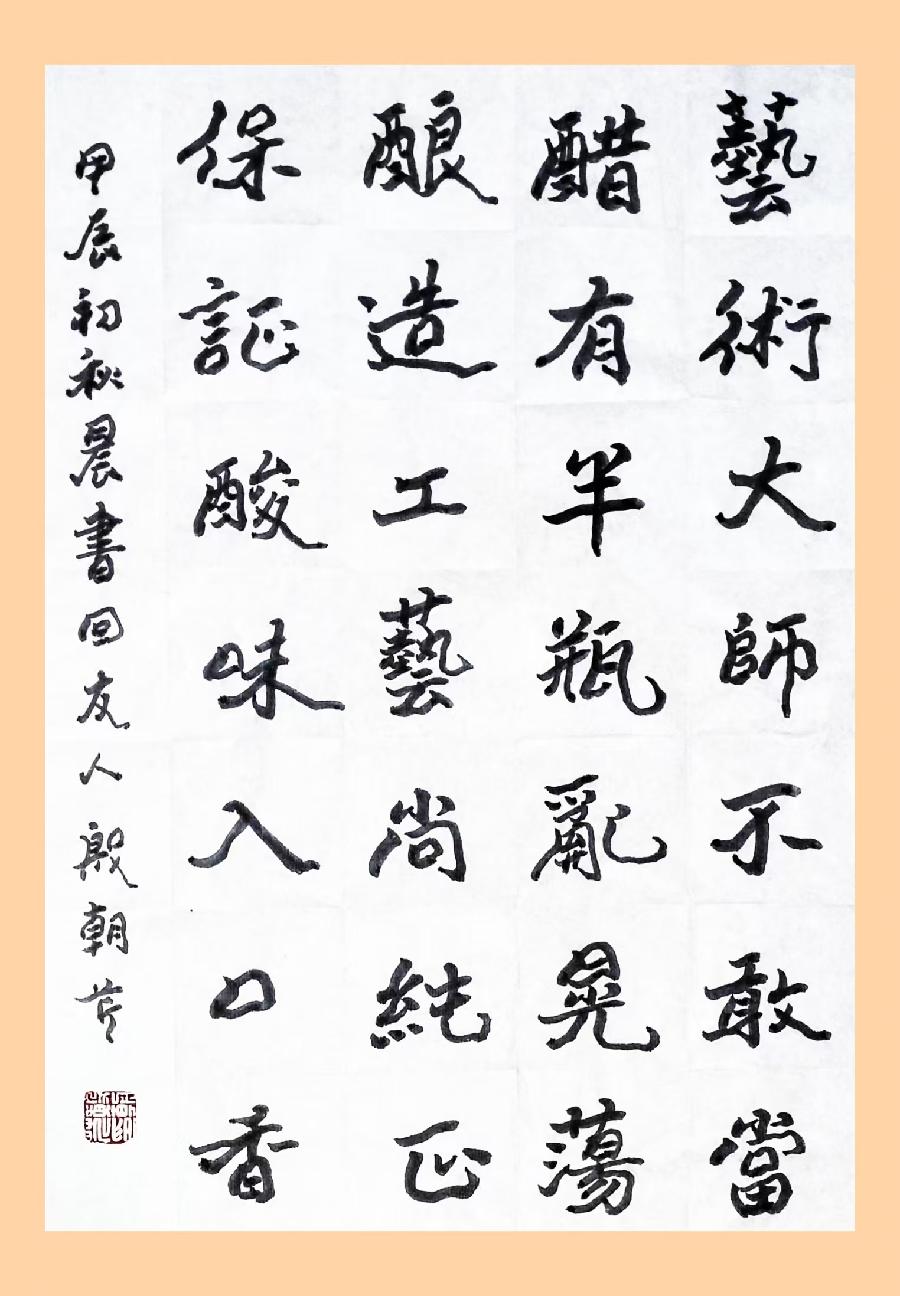 藝術大師不敢當
醋有半瓶亂晃蕩
酿造工藝尚純正
保証酸味入口香
甲辰初秋晨書回友人 殷朝